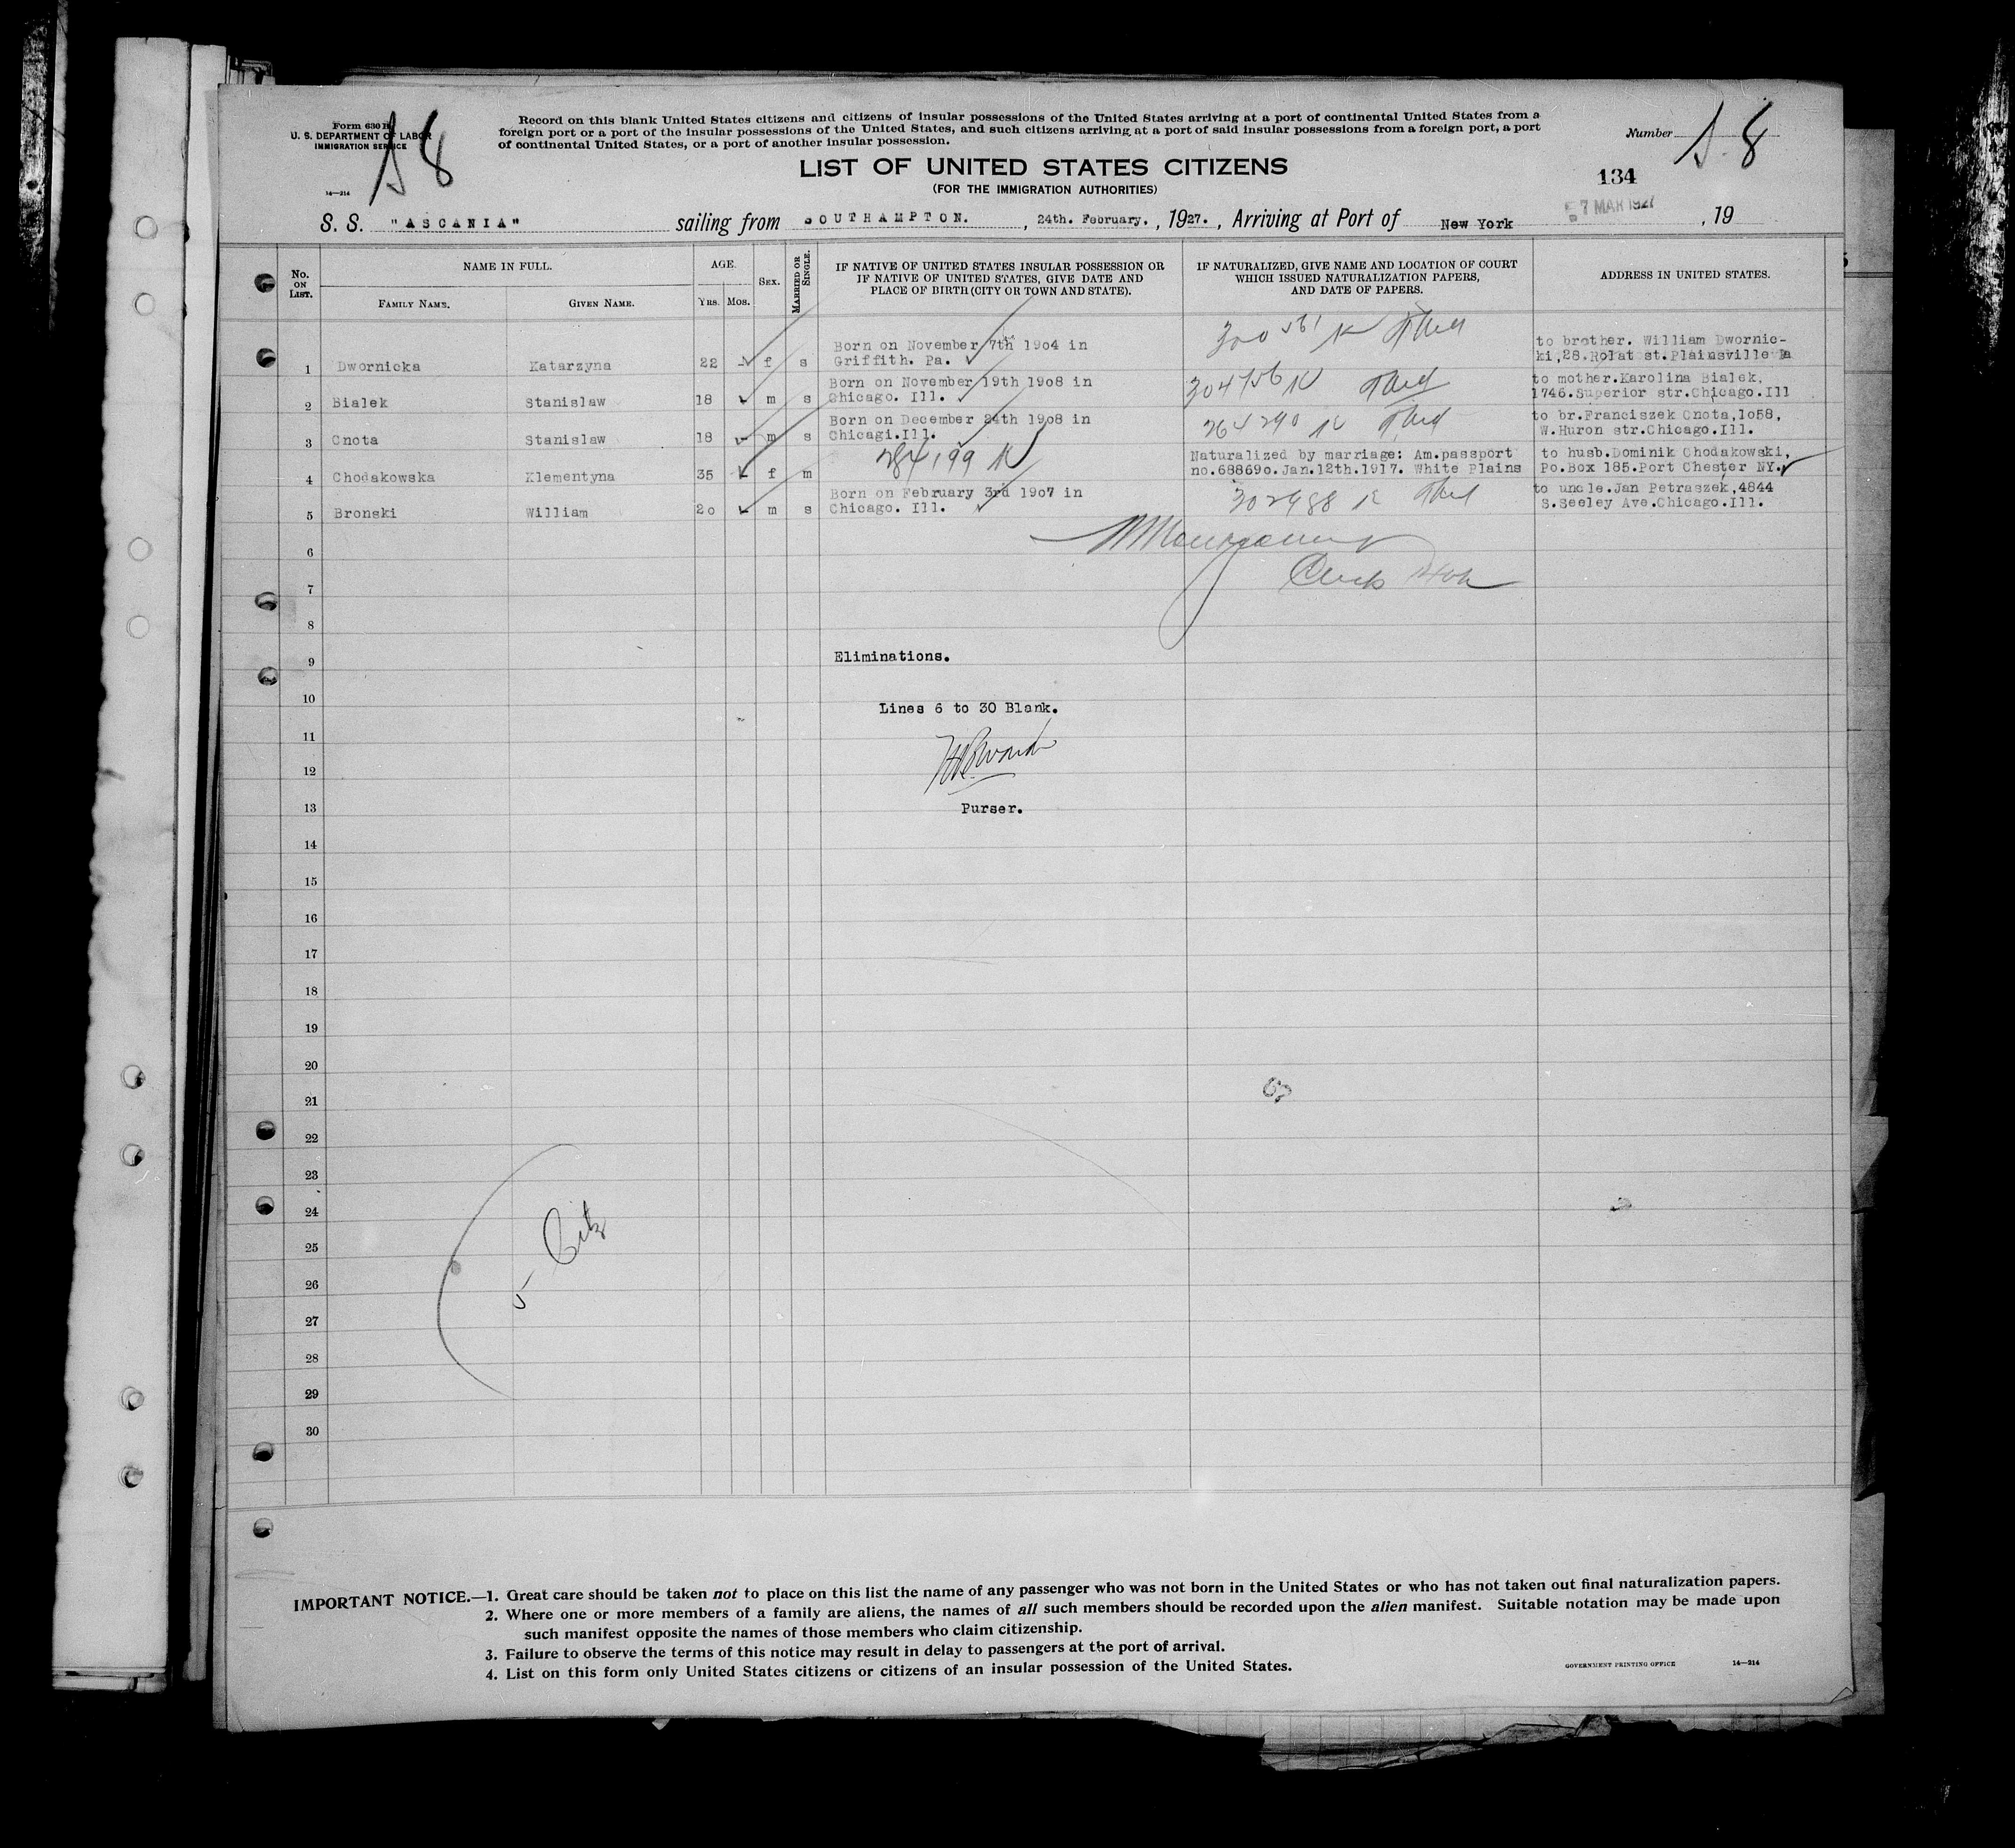 Form 630 B
U. S. DEPARTMENT OF LABOR
IMMIGRATION SERVICE
14—214
Record on this blank United States citizens and citizens of insular possessions of the United States arriving at a port of continental United States from a
foreign port or a port of the insular possessions of the United States, and such citizens arriving at a port of said insular possessions from a foreign port, a port
of continental United States, or a port of another insular possession.
Number
LIST OF UNITED STATES CITIZENS
(FOR THE IMMIGRATION AUTHORITIES)
134
S. S. "ASCANIA" sailing from SOUTHAMPTON. , 24th. February. , 1927. , Arriving at Port of New York 7 MAR 1927 , 19
No. ON LIST.
NAME IN FULL.
FAMILY NAME. GIVEN NAME.
AGE.
YRS. MOS.
SEX.
MARRIED OR SINGLE.
IF NATIVE OF UNITED STATES INSULAR POSSESSION OR
IF NATIVE OF UNITED STATES, GIVE DATE AND
PLACE OF BIRTH (CITY OR TOWN AND STATE).
IF NATURALIZED, GIVE NAME AND LOCATION OF COURT
WHICH ISSUED NATURALIZATION PAPERS,
AND DATE OF PAPERS.
ADDRESS IN UNITED STATES.
1 Dwornicka Katarzyna 22 f s
Born on November 7th 1904 in
Griffith. Pa.
300561 K
to brother. William Dwornic-
ki,28.Rolat st.Plainsville Pa
2 Bialek Stanislaw 18 m s
Born on November 19th 1908 in
Chicago. Ill.
304756 K
to mother.Karolina Bialek,
1746.Superior str.Chicago.Ill
3 Cnota Stanislaw 18 m s
Born on December 24th 1908 in
Chicagi.Ill.
264290 K
to br.Franciszek Cnota,1o58,
W.Huron str.Chicago.Ill.
4 Chodakowska Klementyna 35 f m
284199 K
Naturalized by marriage: Am.passport
no.68869o.Jan.12th.1917. White Plains
to husb.Dominik Chodakowski,
Po.Box 185.Port Chester NY.
5 Bronski William 2o m s
Born on February 3rd 19o7 in
Chicago. Ill.
302988 K
to uncle.Jan Petraszek,4844
S.Seeley Ave.Chicago.Ill.
6
7
8
9
Eliminations.
10
Lines 6 to 30 Blank.
11
12
13
Purser.
14
15
16
17
18
19
20
21
22
23
24
25
26
27
28
29
30
5 Citz
IMPORTANT NOTICE.—1. Great care should be taken not to place on this list the name of any passenger who was not born in the United States or who has not taken out final naturalization papers.
2. Where one or more members of a family are aliens, the names of all such members should be recorded upon the alien manifest. Suitable notation may be made upon
such manifest opposite the names of those members who claim citizenship.
3. Failure to observe the terms of this notice may result in delay to passengers at the port of arrival.
4. List on this form only United States citizens or citizens of an insular possession of the United States.
GOVERNMENT PRINTING OFFICE 14—214